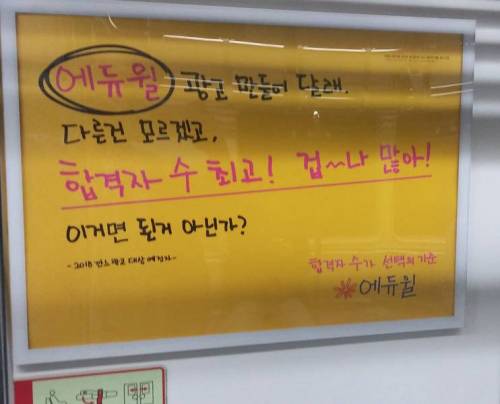 에듀윌 광고 만들어 달래.
다른건 모르겠고,
합격자 수 최고! 겁~~나 많아!
이거면 된거 아닌가?
- 2018 칸느광고 대상 예정자 -
합격자 수가 선택의 기준
에듀윌